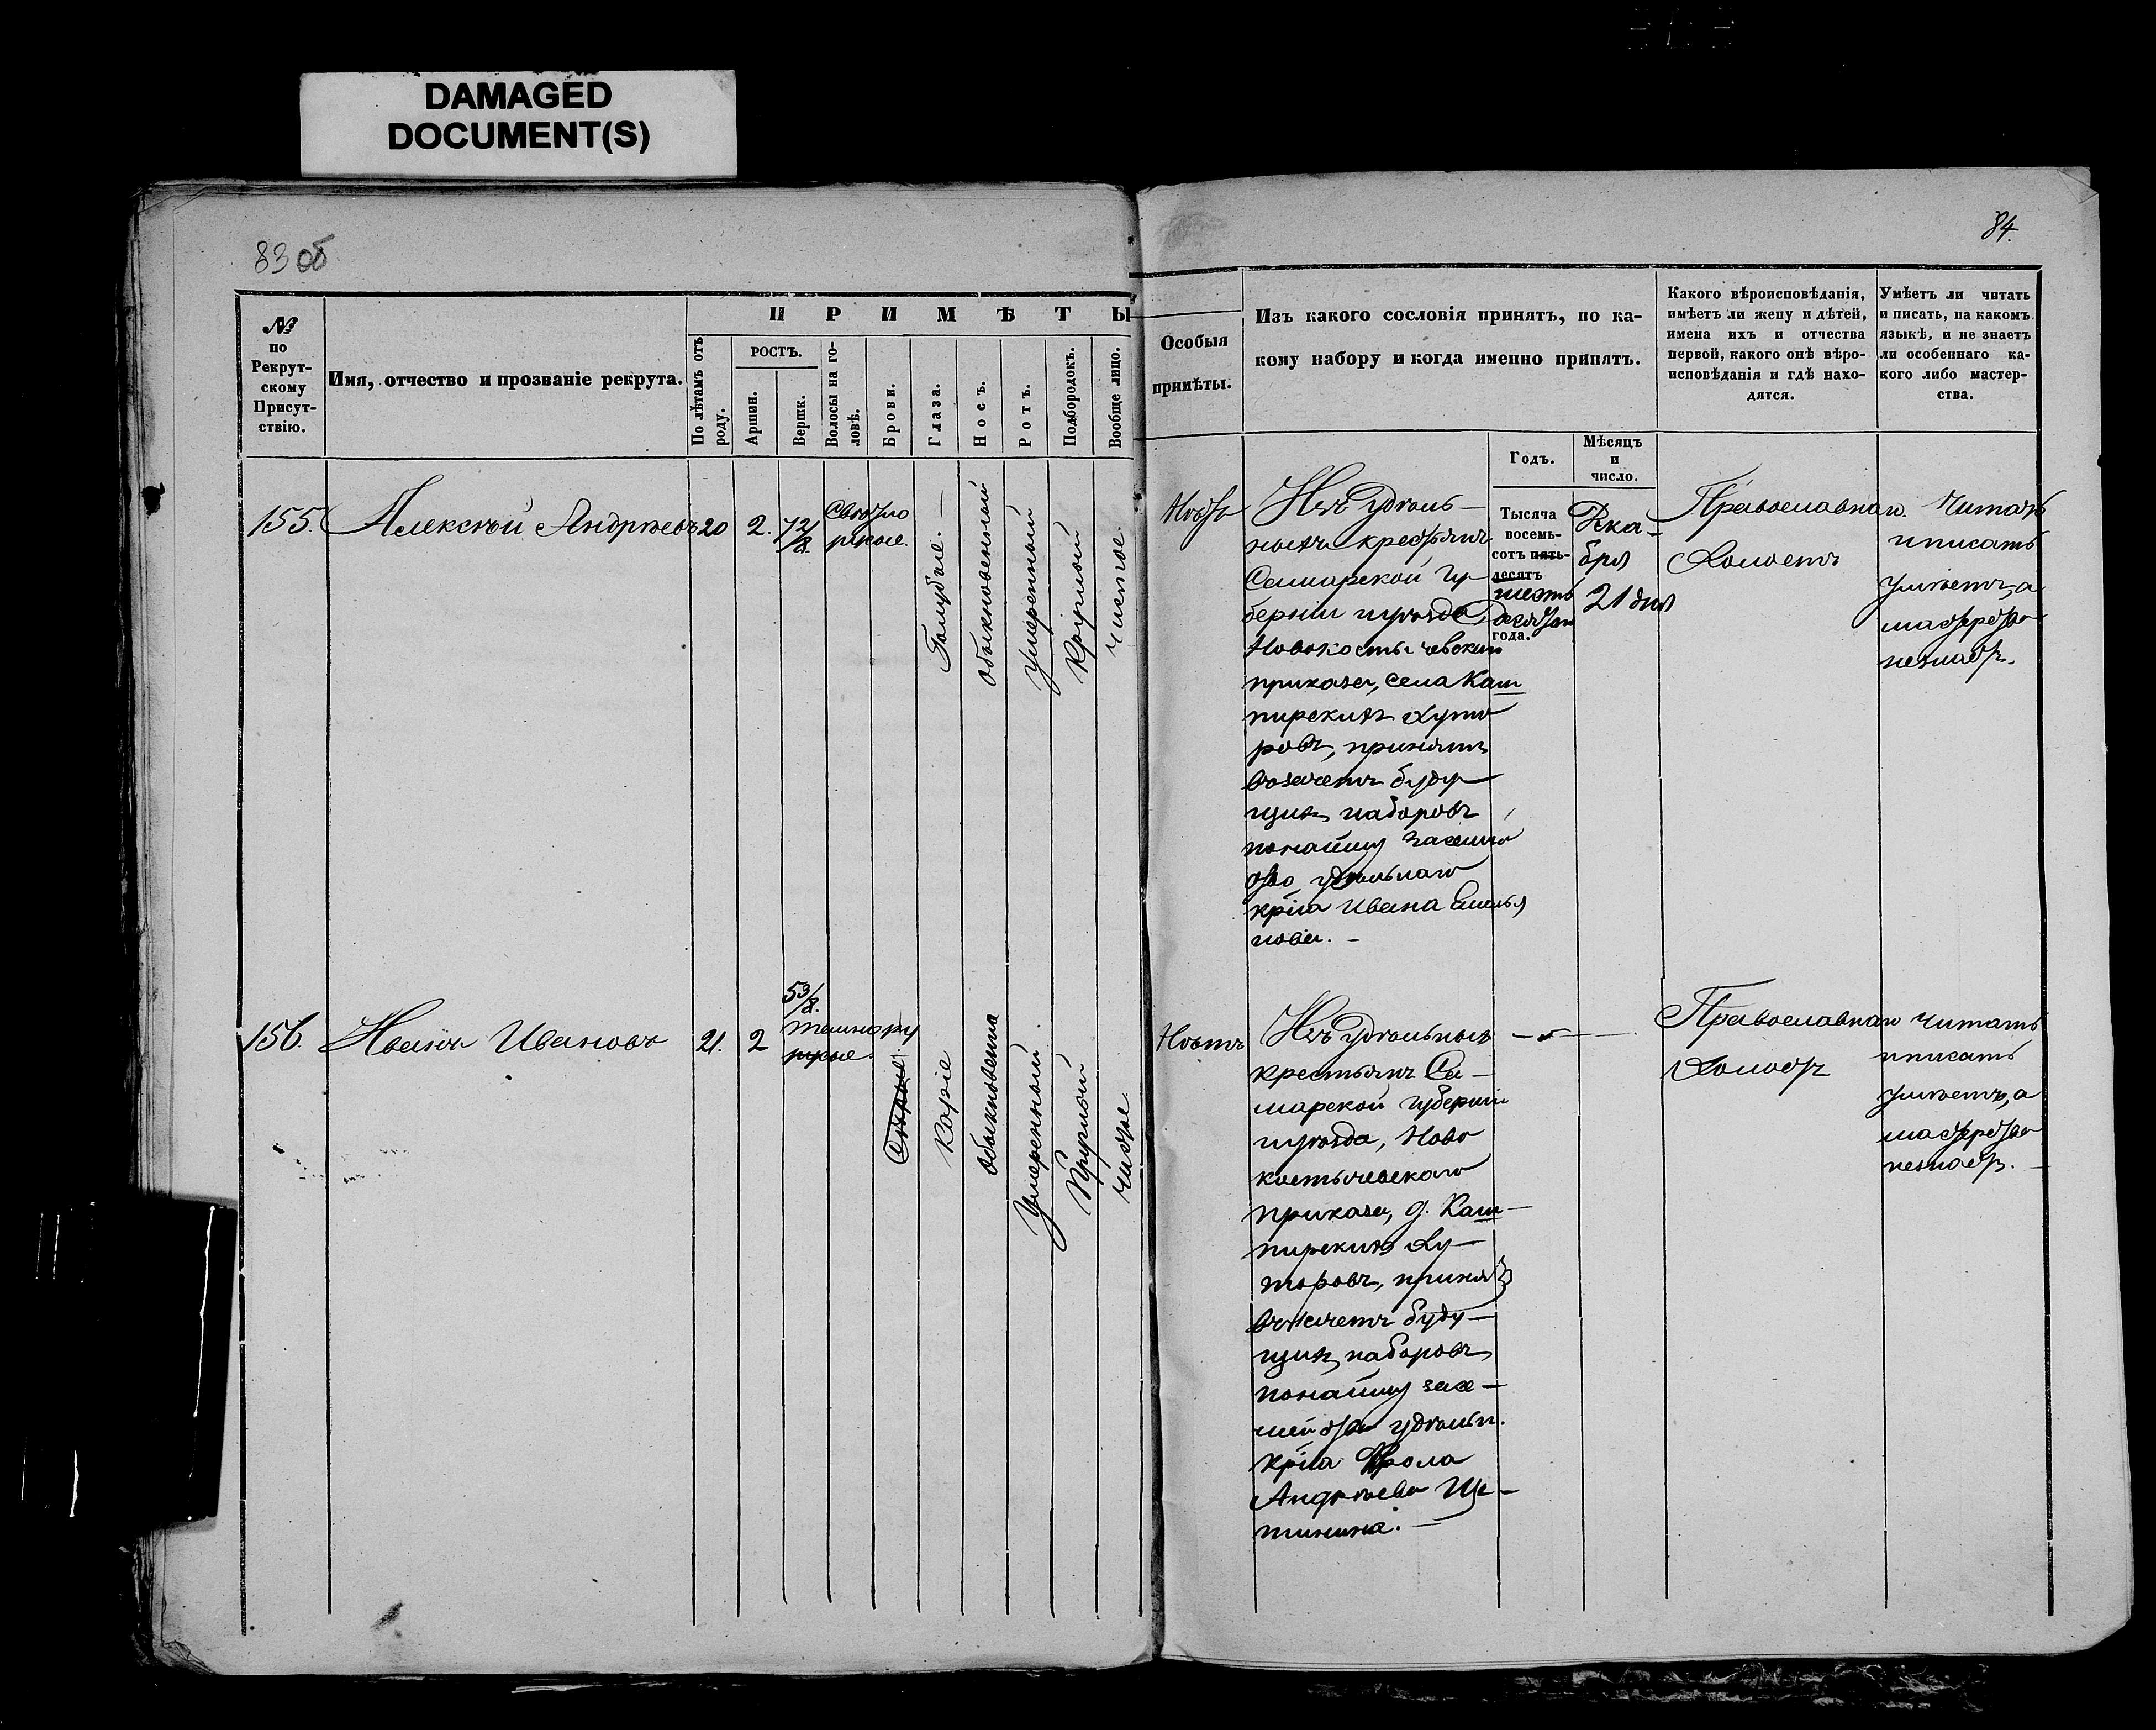 DAMAGED
DOCUMENT(S)
83 об
84.
№
по
Рекрут-
скому
Присут-
ствію.
Имя, отчество и прозваніе рекрута.
П Р И М Ѣ Т Ы
По лѣтамъ отъ
роду.
РОСТЪ.
Аршин.
Вершк.
Волосы на го-
ловѣ.
Брови.
Глаза.
Носъ.
Ротъ.
Подбородокъ.
Вообще лицо.
Особыя
примѣты.
Изъ какого сословія принятъ, по ка-
кому набору и когда именно принятъ.
Какого вѣроисповѣданія,
имѣетъ ли жену и дѣтей,
имена ихъ и отчества
первой, какого онѣ вѣро-
исповѣданія и гдѣ нахо-
дятся.
Умѣетъ ли читать
и писать, на какомъ
языкѣ, и не знаетъ
ли особеннаго ка-
кого либо мастер-
ства.
Годъ.
Мѣсяцъ
и
число.
155.
Алексѣй Андрѣевъ
20
2.
7 2/8.
Свѣтло
русые.
Голубые. —
обыкновенный
умеренный
Круглой
чистое.
Нѣтъ
Изъ удѣль-
ныхъ крестьянъ
Самарской гу-
берніи и уѣзда
Новокостычевскаго
приказа, села Каш
пирскихъ Хуто
ровъ, принятъ
взачетъ буду-
щихъ наборовъ
понайму засемей
ство удѣльнаго
кр҃іна Ивана Емелья
нова. —
Тысяча
восемь-
сотъ пять-
десятъ
шесть
десятъ
года.
Дека-
бря
21 дня
Православнаго
Холостъ
Читать
иписать
умѣетъ, а
мастерства
незнаетъ.
156.
Иванъ Ивановъ
21.
2
5 3/8.
темнору
русые.
Серые
Каріе
обыкновенна
умеренный.
Круглой
чистое.
Нѣтъ
Изъ Удѣльныхъ
крестьянъ Са-
марской губерніи
иуѣзда, Ново
костычевскаго
приказа, д. Каш-
пирскихъ Ху-
торовъ, принятъ
взачетъ буду-
щихъ наборовъ
понайму засе-
мейства удѣльн.
кр҃іна Фрола
Андрѣева Ще-
тинина. —
— „ —
Православнаго
Холостъ
Читать
иписать
умѣетъ, а
мастерства
незнаетъ. —